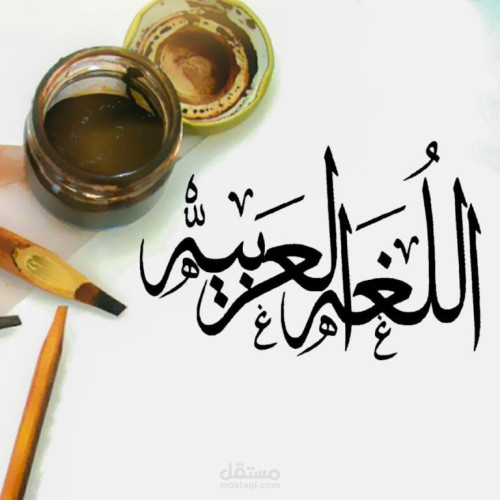 اللُغَه العَربيه
مستقل
mostaql.com